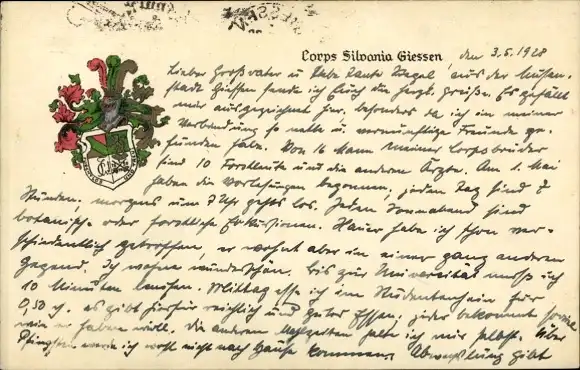 Corps Silvania Giessen, den 3.5.1928
Lieber Großvater u. liebe Tante aus der Musen-
stadt Gießen sende ich Euch die herzl. Grüße. Es gefällt
mir ausgezeichnet hier, besonders da ich in meiner
Verbindung so nette u. vernünftige Freunde ge-
funden habe. Von 16 Mann meiner Corpsbrüder
sind 10 Forstleute und die anderen Ärzte. Am 1. Mai
haben die Vorlesungen begonnen, jeden Tag sind 7
Stunden. morgens um 7 Uhr gehts los. Jeden Sonnabend sind
botanische oder forstliche Exkursionen. habe ich schon ver-
schiedentlich getroffen, er wohnt aber in einer ganz anderen
Gegend. Ich wohne wunderschön. Bis zur Universität muß ich
10 Minuten laufen. Mittag esse ich im Studentenheim für
0,50 M. es gibt hierfür reichlich und gutes Essen. jeder bekommt soviel
wie er haben will. Die anderen Mahlzeiten halte ich mir selbst. Über
Pfingsten werde ich wohl nicht nach Hause kommen. Abwechslung gibt